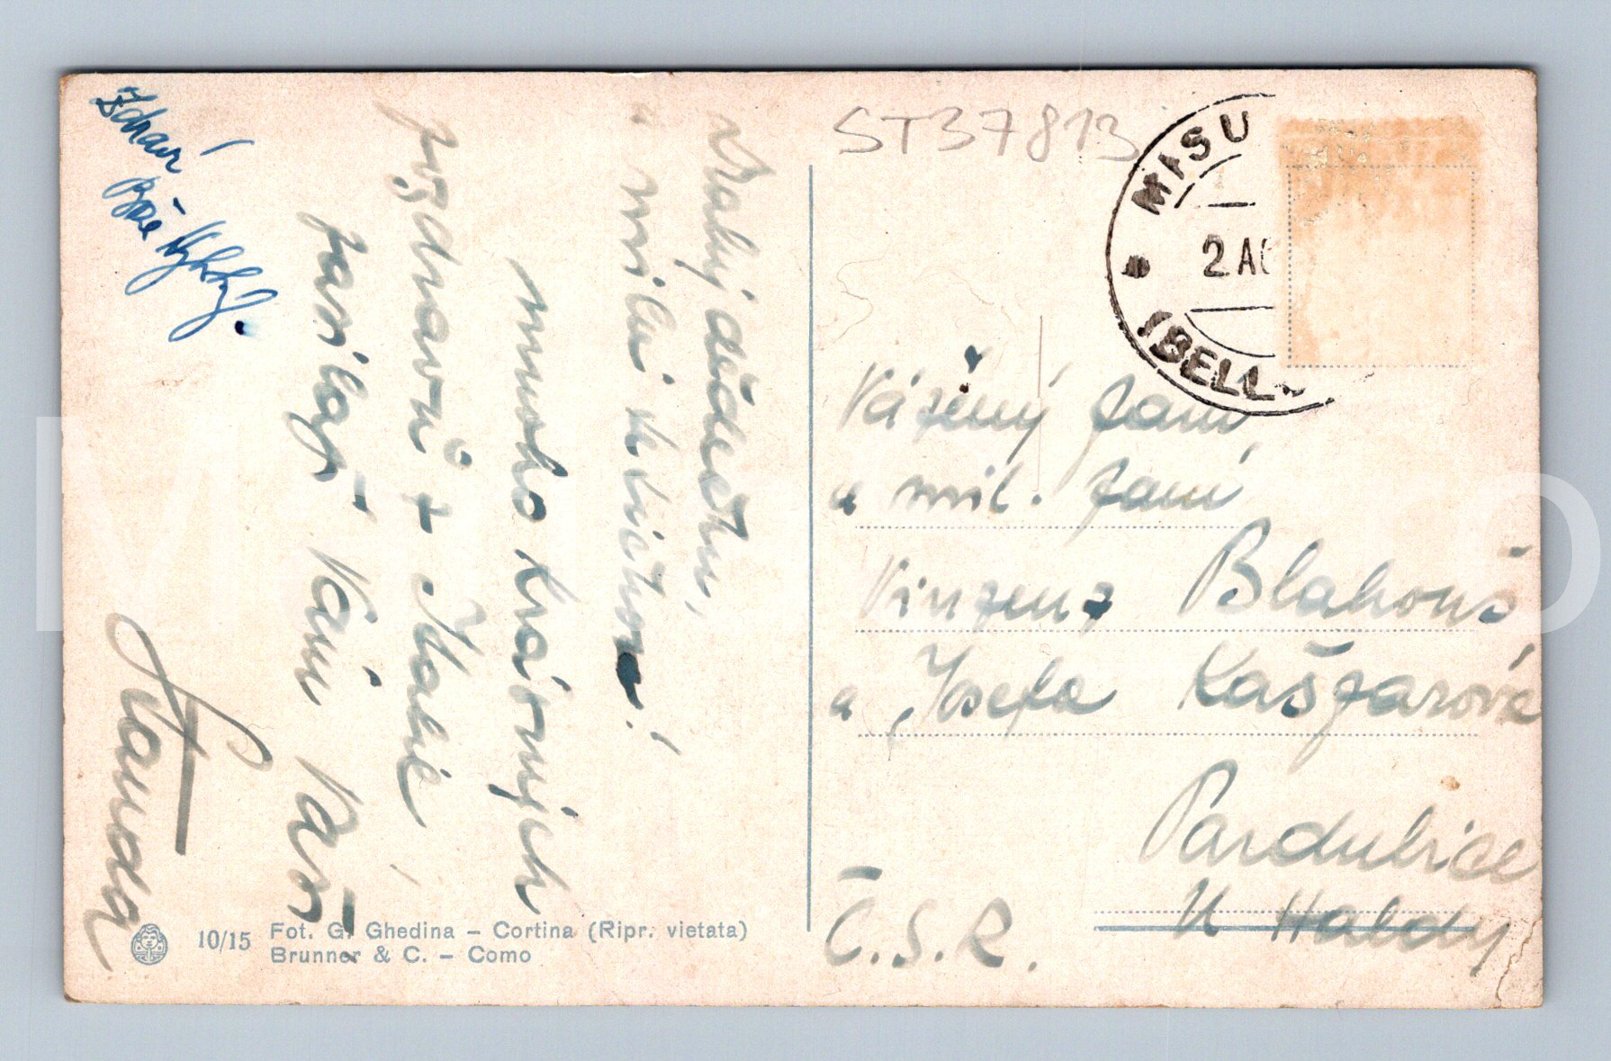 ST37813
MISU
2 AG
(BELL
Drahý dědečku,
a milá tetičko!
mnoho krásných
pozdravů z Italie
posílají Vám Váš
Standa
Zdraví
Vážený paní
a mil. paní
Vinzenz Blahouš
a Josefa Kašparová
Pardubice
U Haldy
Č.S.R.
10/15 Fot. G. Ghedina – Cortina (Ripr. vietata)
Brunner & C. – Como